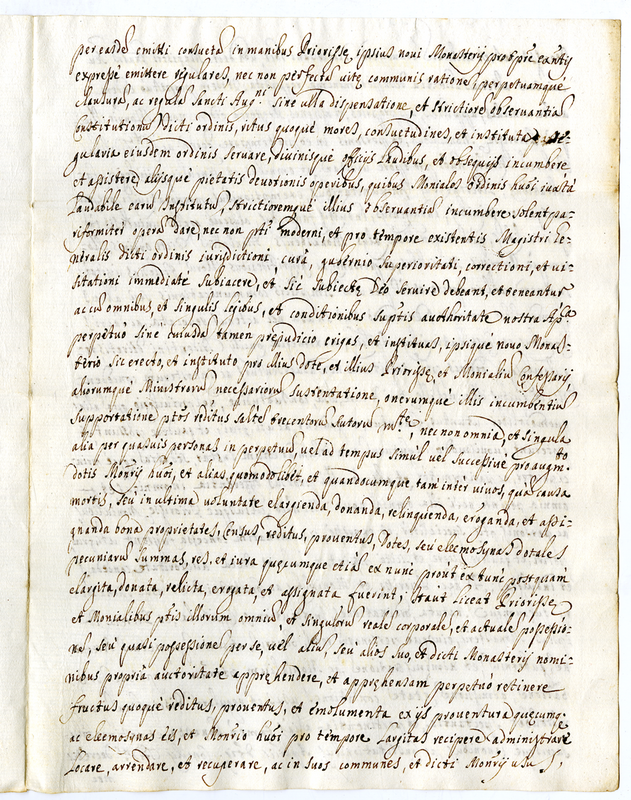 per easdẽ emitti consueta in manibus Priorissę ipsius noui Monasterij pro tpre exñtis
expressè emittere regulares, nec non perfecta uitę communis ratione, perpetuamque
clausura, ac regula Sancti Aug.ni sine ulla dispensatione, et strictiore obseruantia
Constitutionũ dicti ordinis, ritus quoque mores, consuetudines, et instituta re=
gularia eiusdem ordinis seruare, diuinisque officijs laudibus, et obsequijs incumbere
et assistere alijsque pietatis deuotionis operibus, quibus Moniales ordinis huõi iuxta
laudabile earũ Institutũ, strictioremque illius obseruantia incumbere solent pa=
riformiter opera dare, nec non pti moderni, et pro tempore existentis Magistri Ge=
neralis dicti ordinis iurisdictioni, cura, gubernio superioritati, correctioni, et ui=
sitationi immediatè subiacere, et sic subiectę Deo seruire debeant, et teneantur
ac cũ omnibus, et singulis legibus, et conditionibus suptis authoritate nostra Ap.ca
perpetuò sine cuiusdã tamen prejudicio erigas, et instituas, ipsique nouo Monas=
terio sic erecto, et instituto pro illius dote, et illius Priorissę, et Monialiũ Confessarij
aliorumque Ministrorũ necessariorũ sustentatione, onerumque illis incumbentiũ
supportatione ptos reditus saltẽ trecentorũ scutorũ m.tę, nec non omnia, et singula
alia per quasuis personas in perpetuũ, uel ad tempus simul uel successiuè pro augm.to
dotis Moñrij huõi, et alias quomodolibet, et quandocumque tam inter uiuos, quã causa
mortis, seu in ultima uoluntate elargienda, donanda, relinquenda, eroganda, et assi=
gnanda bona proprietates, Census, reditus, prouentus, dotes, seu eleemosynas dotales
pecuniarũ summas, res, et iura quęcumque etiã ex nunc prout ex tunc postquam
elargita, donata, relicta, erogata, et assignata fuerint, itaut liceat Priorissę
et Monialibus ptis illorum omniũ, et singulorũ reale corporale, et actuale possessio=
nes, seu quasi possessione per se, uel aliũ, seu alios suo, et dicti Monasterij nomi=
nibus propria auctoritate appręhendere, et appręhensam perpetuò retinere
fructus quoque reditus, prouentus, et emolumenta ex ijs prouentura quęcumq.
ac eleemosynas eis, et Monrio huõi pro tempore largitas recipere administrare
locare, arrendare, et recuperare, ac in suos communes, et dicti Moñrij usus,